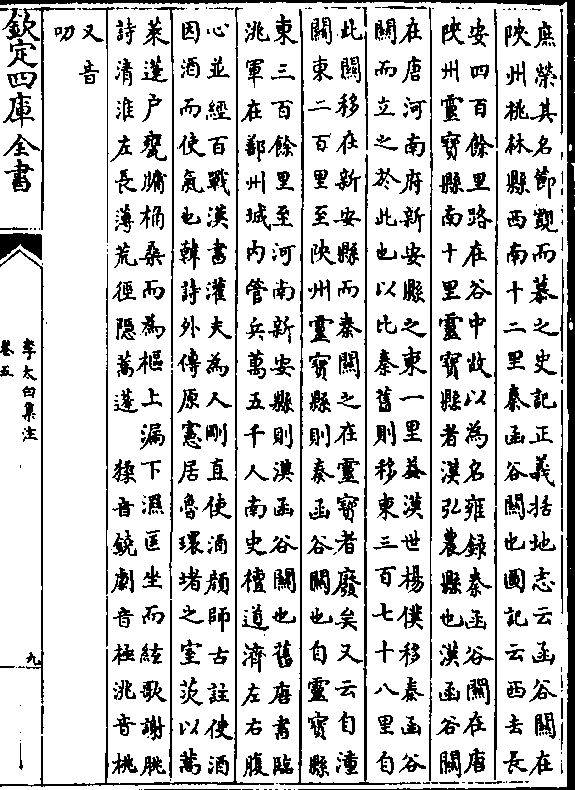 庶榮其名節觀而慕之史記正義括地志云函谷關在
陜州桃林縣西南十二里秦函谷關也圖記云西去長
安四百餘里路在谷中故以為名雍錄秦函谷關在唐
陜州靈寶縣南十里靈寶縣者漢弘農縣也漢函谷關
在唐河南府新安縣之東一里蓋漢世楊僕移秦函谷
關而立之於此也以比秦舊則移東三百七十八里自
此關移在新安縣而秦關之在靈寶者廢矣又云自潼
關東二百里至陜州靈寶縣則秦函谷關也自靈寶縣
東三百餘里至河南新安縣則漢函谷關也舊唐書臨
洮軍在鄯州城内管兵萬五千人南史檀道濟左右腹
心並經百戰漢書灌夫為人剛直使酒顔師古註使酒
因酒而使氣也韓詩外傳原憲居魯環堵之室茨以蒿
萊蓬户甕牖桷桑而為樞上漏下濕匡坐而絃歌謝朓
詩清淮左長薄荒徑隱蒿蓬　橈音鐃劇音極洮音桃
又音
叨
欽定四庫全書
李太白集注
卷五
九